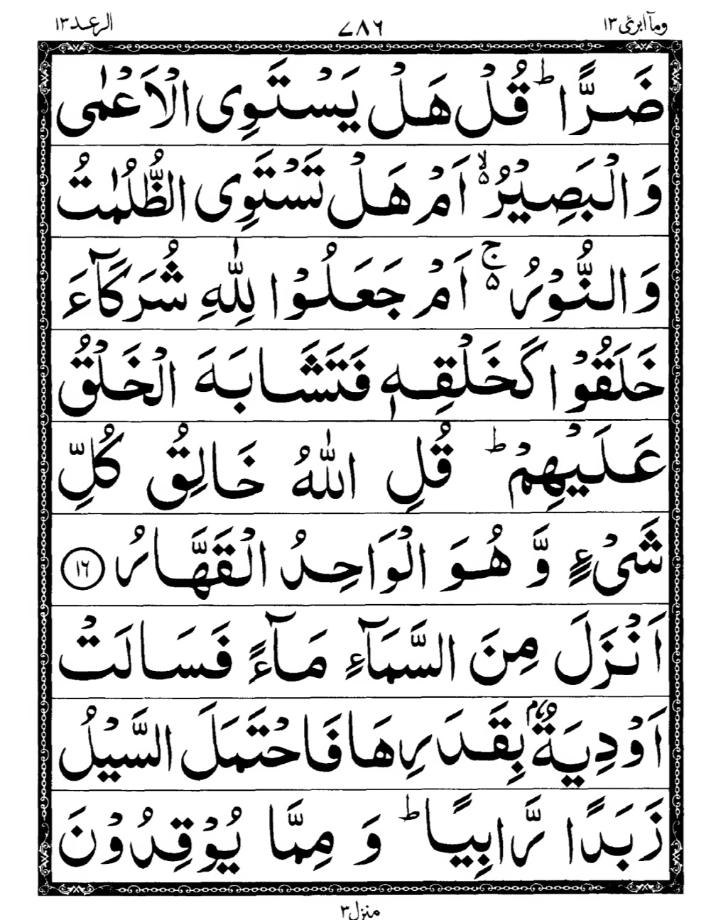 الرعد ١٣ ٧٨٦ ومآ ابرئ ١٣
ضَرًّا ؕ قُلۡ هَلۡ يَسۡتَوِى الۡاَعۡمٰى
وَالۡبَصِيۡرُ ۙ۬ اَمۡ هَلۡ تَسۡتَوِى الظُّلُمٰتُ
وَالنُّوۡرُ ۚ۬ اَمۡ جَعَلُوۡا لِلّٰهِ شُرَكَآءَ
خَلَقُوۡا كَخَلۡقِهٖ فَتَشَابَهَ الۡخَلۡقُ
عَلَيۡهِمۡ ؕ قُلِ اللّٰهُ خَالِقُ كُلِّ
شَىۡءٍ وَّ هُوَ الۡوَاحِدُ الۡقَهَّارُ ﴿١٦﴾
اَنۡزَلَ مِنَ السَّمَآءِ مَآءً فَسَالَتۡ
اَوۡدِيَةٌۢ بِقَدَرِهَا فَاحۡتَمَلَ السَّيۡلُ
زَبَدًا رَّابِيًا ؕ وَ مِمَّا يُوۡقِدُوۡنَ
منزل ٣